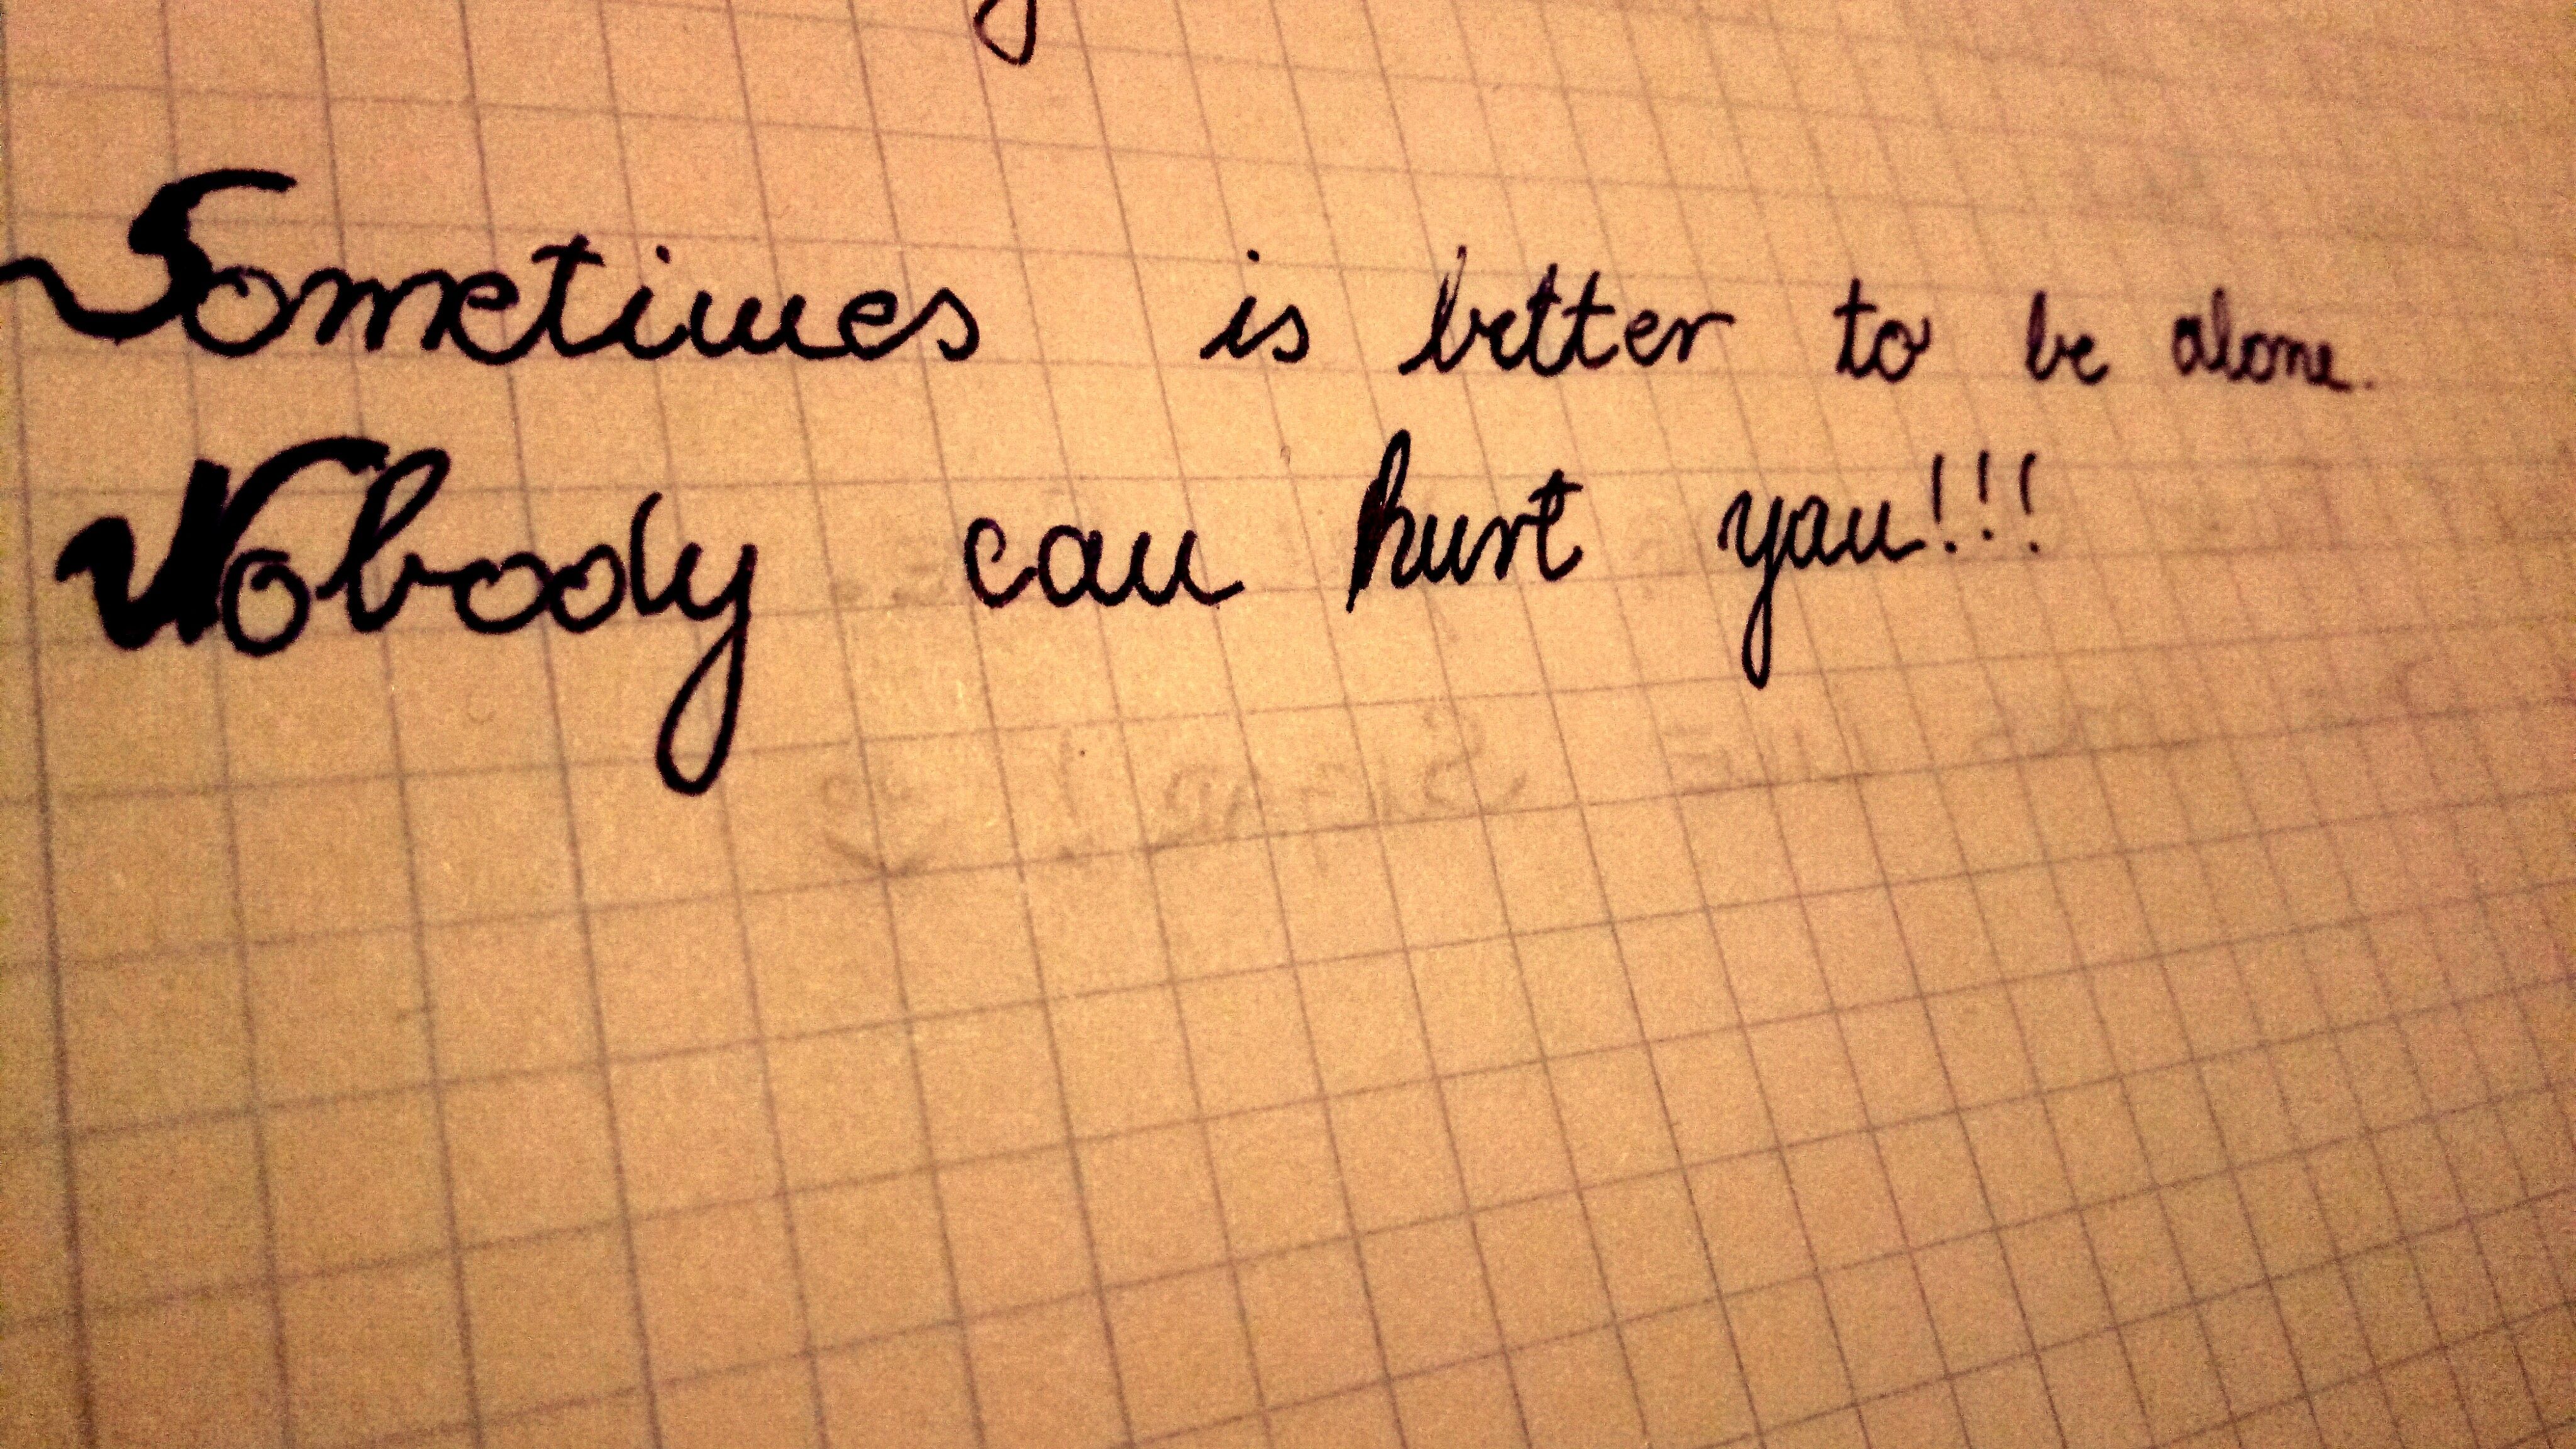 Sometimes is better to be alone.
Nobody can hurt you!!!